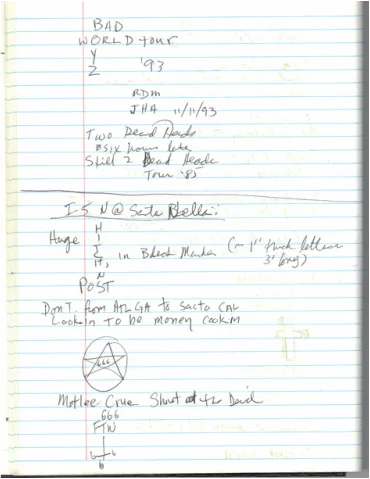 BAD
WORLD tour
Y
Z '93
RDM
JHA 11/11/93
Two Dead Heads
Six hours late
Still 2 Dead Heads
Tour '85
I-5 N @ Santa Nella:
Huge
H
I
in Black Marker (~ 1" thick letters
3' long)
N
POST
Don T. from ATL GA to Sacto CAL
Lookin To be money cookin
666
Motlee Crue Shout at the Devil
666
FTW
6 6
6